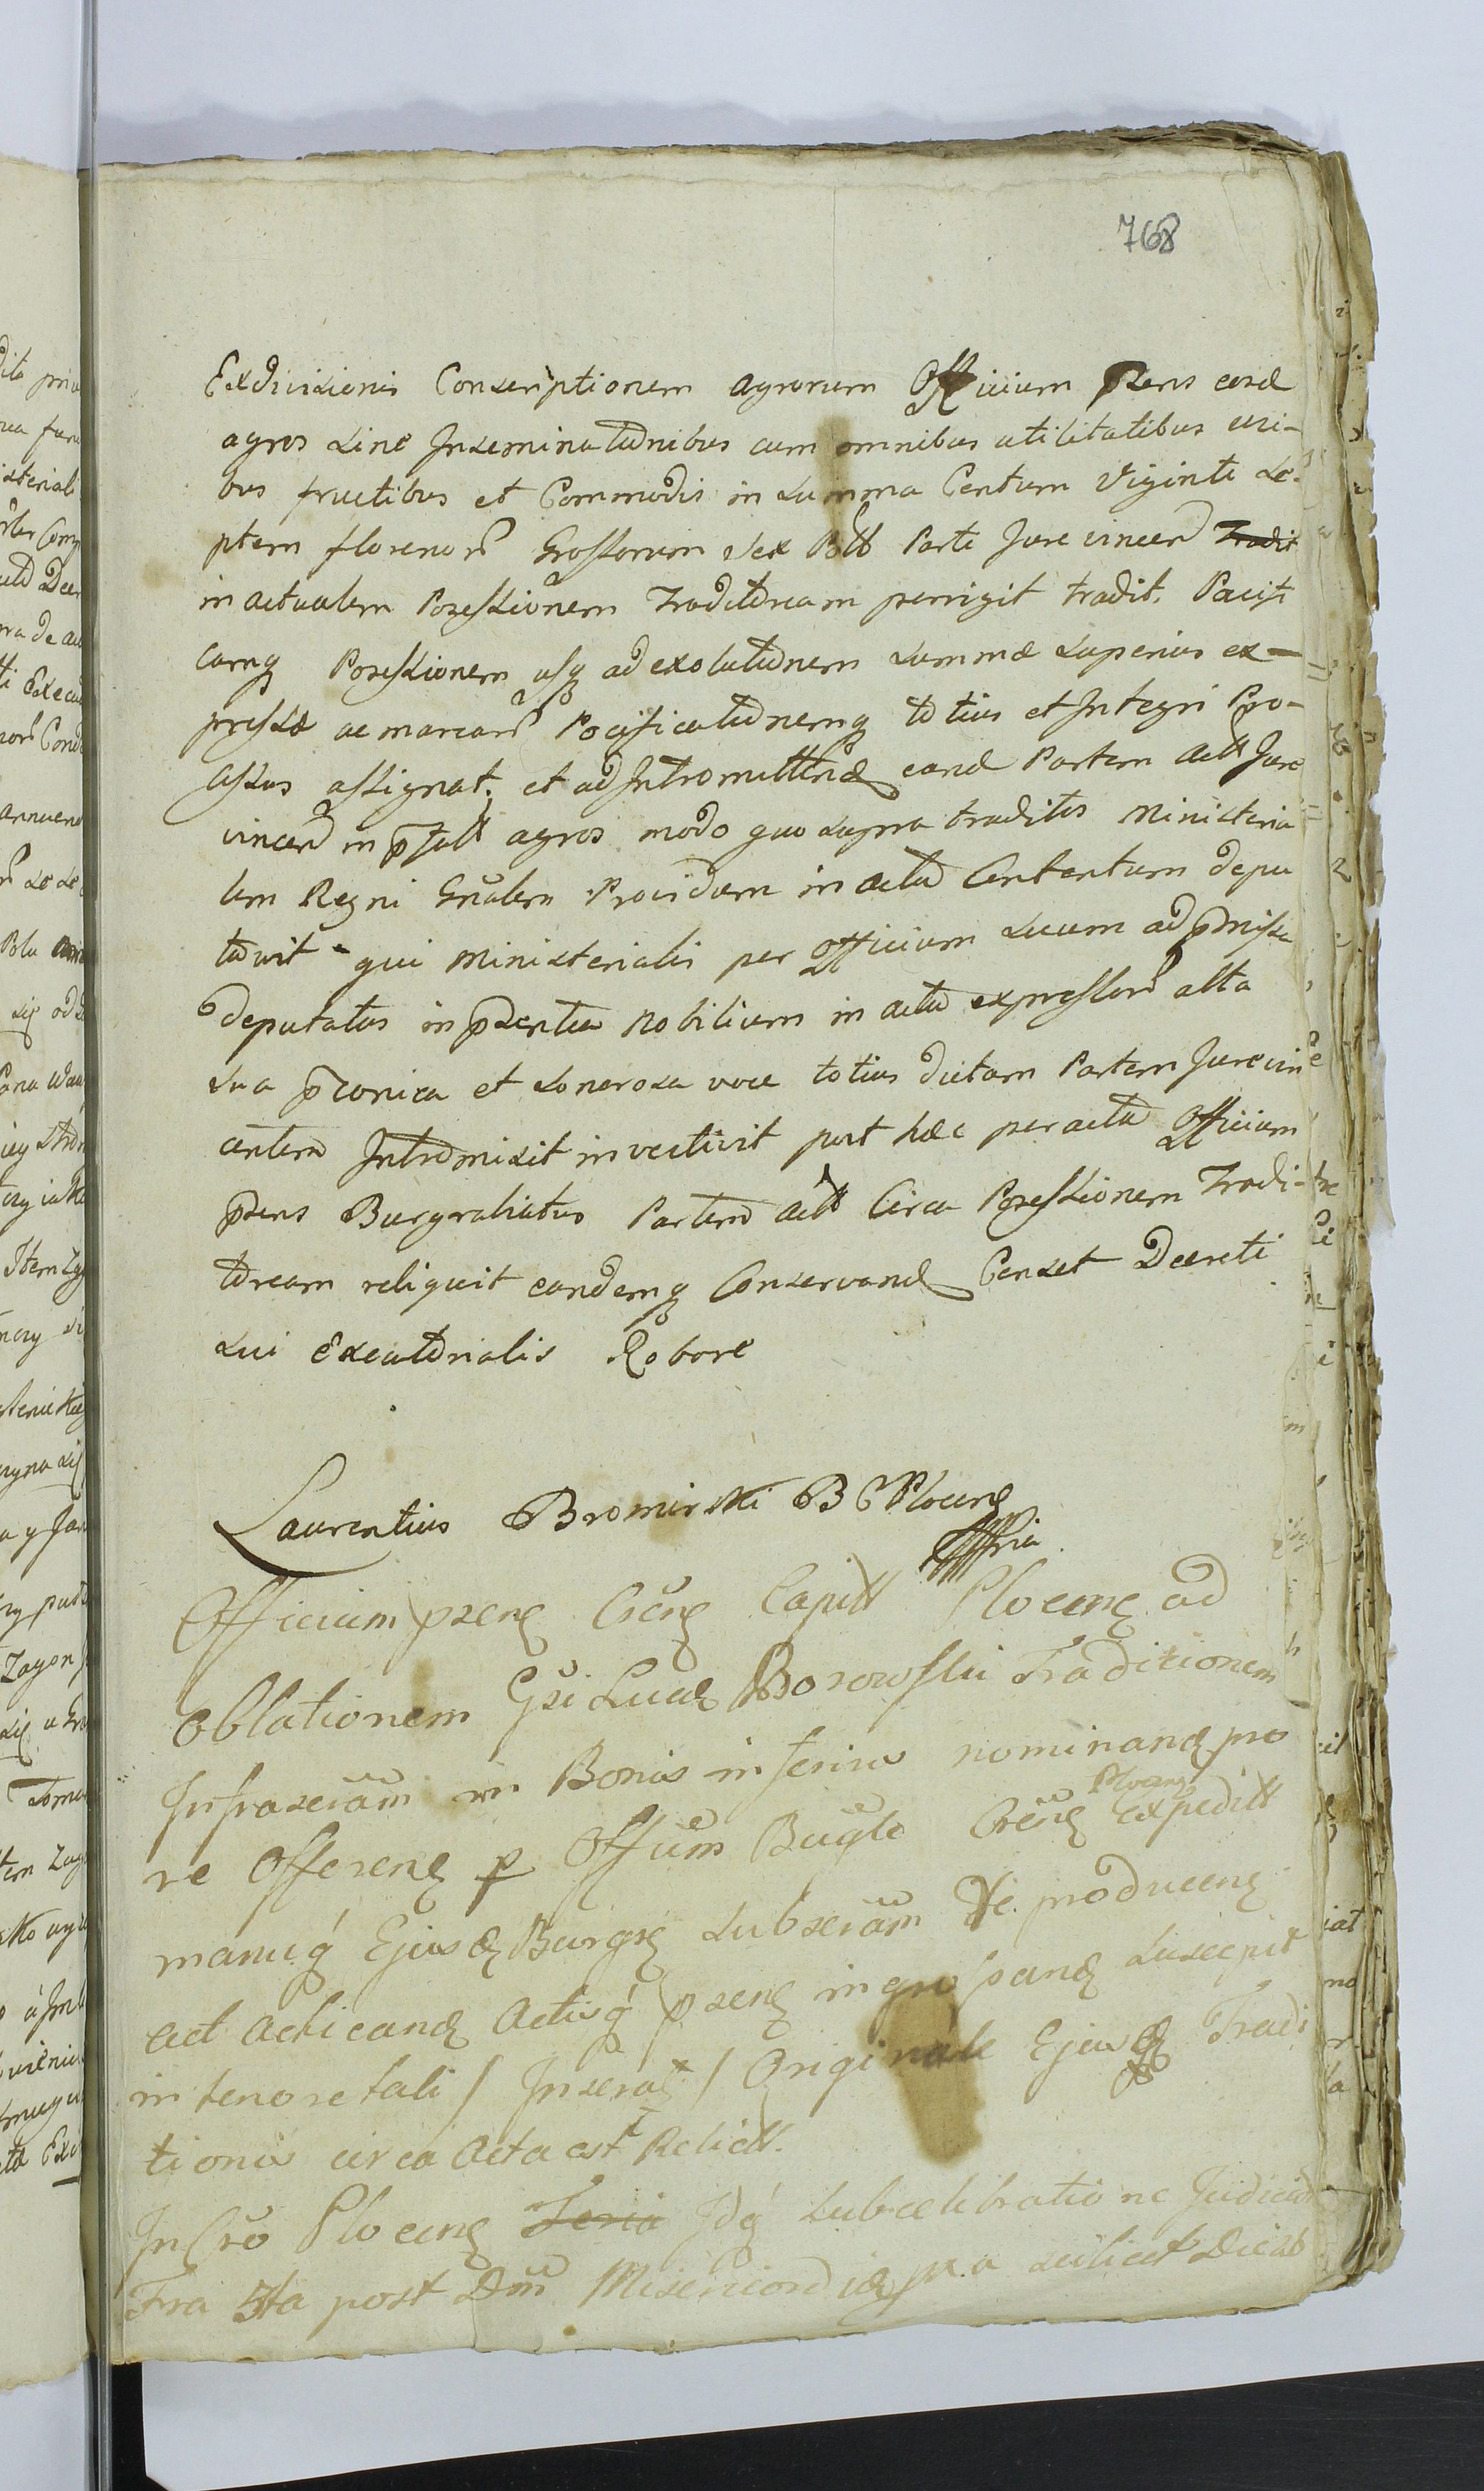 768
Exdivisionis Conscriptionem agrorum Officium Psens eosd
agros sine Inseminationibus cum omnibus utilitatibus usi-
bus fructibus et Commodis in summa Centum Viginti Se-
ptem florenor Grossorum sex Poll Parti Jure vincen Tradit
in actualem Possessionem Traditoream perrigit tradit, Pacifi
camq Possessionem usq ad exolutionem summæ superius ex-
pressæ ac marcar Pacificationemq totius et Integri Pro-
cessus assignat, et ad Intromittend eand Partem Act Jure
vincen in psatt agros modo quo supra traditos Ministeria
lem Regni Gnalem Providum in actu Contentum depu
tavit qui Ministerialis per Officium suum ad pmissa
deputatus in psentia Nobilium in actu expressor alta
sua pconica et sonorosa voce totius dictam Partem Jurevin
centem Intromisit investivit post hæc peracta Officium
psens Burgrabiatus Partem Act Circa Possessionem Tradi-
toream reliquit eandemq Conservand Censet Decreti
sui Executorialis Robore
Laurentius Bromirski B C Plocens
Officium psens Crens Capitt Plocens ad
Oblationem Gsi Lucæ Borowski Traditionem
Infrascram in Bonis inferius nominand pro
re Offerens p Offum Burgle Crens Plocens Expeditt
manuq Ejusd Burgs subscram De producens
act acticand Actisq psens ingrossand suscepit
in tenore tali / Inserat / Originale Ejusd Tradi
tionis circa Acta est Relict.
In Cro Plocens Feria Idq sub celebratione Judicior
Fra 5ta post Dom Misericordiæ scilicet Die